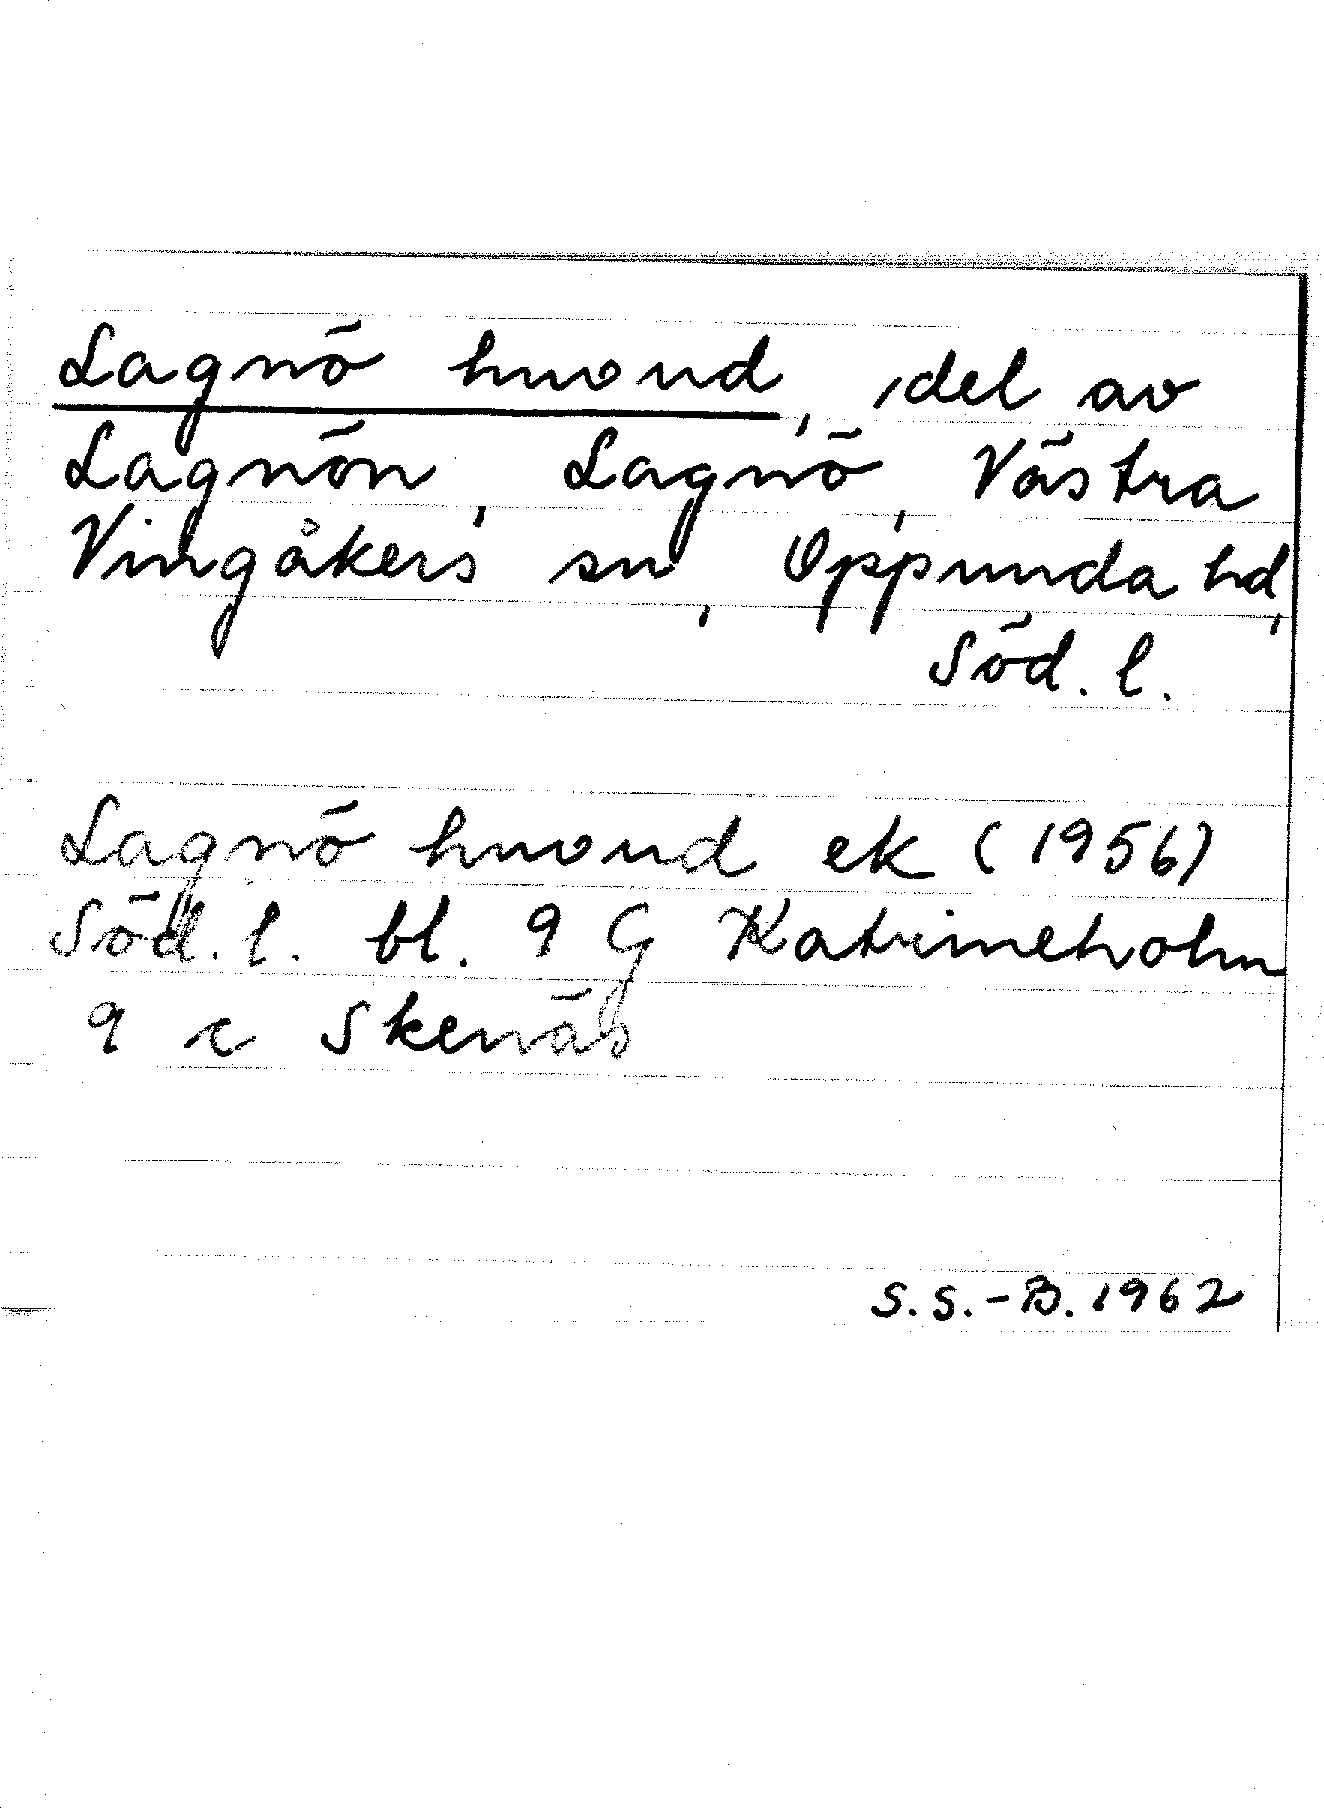 Lagnö huvud, del av
Lagnön, Lagnö, Västra
Vingåkers sn, Oppunda hd,
Söd. l.
Lagnö huvud ek (1956)
Söd. l. bl. 9 G Katrineholm
9 c Skenäs
S.S.-B. 1962